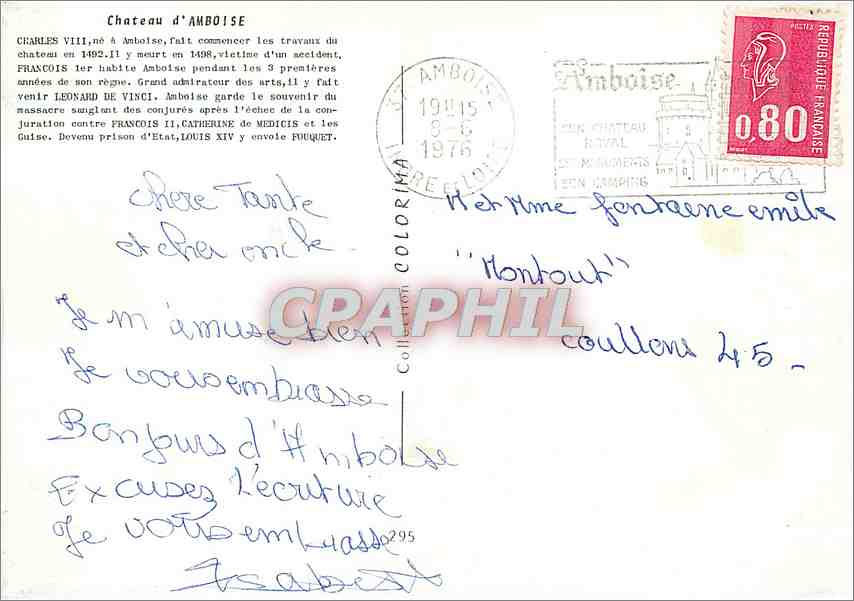 Chateau d'AMBOISE
CHARLES VIII,né à Amboise,fait commencer les travaux du
chateau en 1492.Il y meurt en 1498,victime d'un accident.
FRANCOIS 1er habite Amboise pendant les 3 premières
années de son règne. Grand admirateur des arts,il y fait
venir LEONARD DE VINCI. Amboise garde le souvenir du
massacre sanglant des conjurés après l'échec de la con-
juration contre FRANCOIS II,CATHERINE de MEDICIS et les
Guise. Devenu prison d'Etat,LOUIS XIV y envoie FOUQUET.
37 AMBOISE
19H15
8-6
1976
INDRE et LOIRE
Amboise
SON CHATEAU
ROYAL
SES MONUMENTS
SON CAMPING
POSTES
REPUBLIQUE FRANÇAISE
0,80
chere Tante
et cher oncle
Je m'amuse bien
Je vous embrasse
Bonjours d'Amboise
Excusez l'écriture
Je vous embrasse
Isabelle
M et Mme fontaine emile
"Montout"
coullons 45 -
Collection COLORIMA
295
CPARHIL